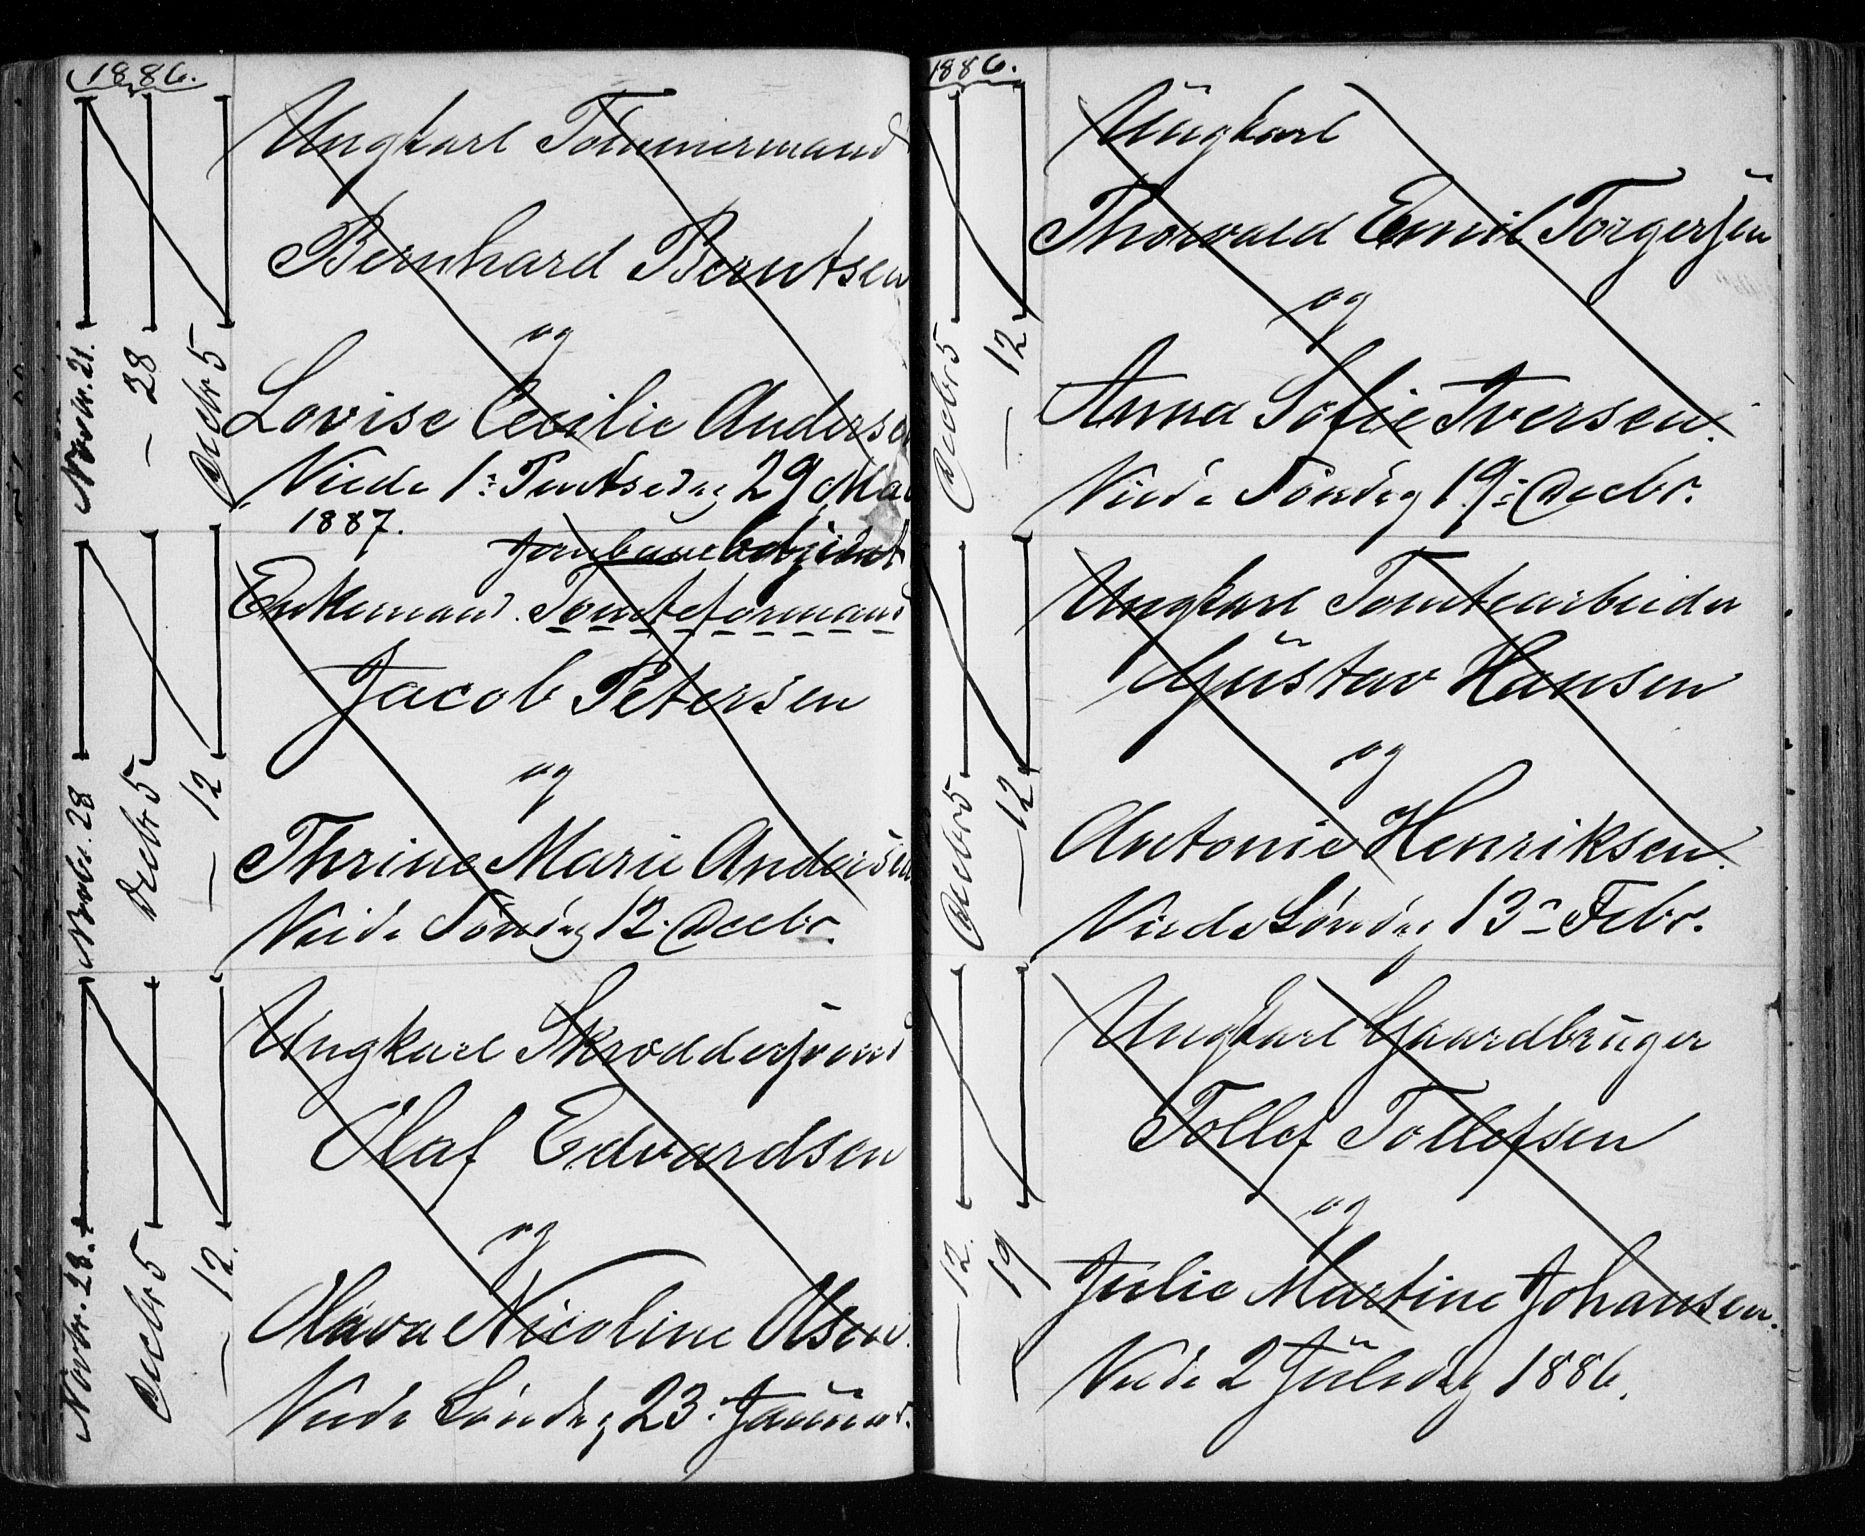 1886.
Ungkarl Tømmermand
Bernhard Berntsen
og
Lovise Cecilie Andersen
Viede 1: Pintsedag 29 Mai
1887.
Novbr. 21.
— 28
Decbr 5
Jernbanebetjent
Enkemand. Tomteformand
Jacob Petersen
og
Thrine Marie Andersen
Viede Søndag 12. Decbr.
Novbr. 28
Decbr 5
— 12
Ungkarl Skræddersvend
Olaf Edvardsen
og
Olava Nicoline Olsen.
Viede Søndag 23. Januar.
Novbr. 28.
Decbr 5
— 12.
1886.
Ungkarl
Thorvald Emil Torgersen
og
Anna Sofie Iversen.
Viede Søndag 19: Decbr.
Decbr 5
— 12
Ungkarl Tomtearbeider
Gustav Hansen
og
Antonie Henriksen.
Viede Søndag 13 Febr.
Decbr 5
— 12
Ungkarl Gaardbruger
Tollef Tollefsen
og
Julie Martine Johansen.
Viede 2 Juledag 1886.
— 12.
19